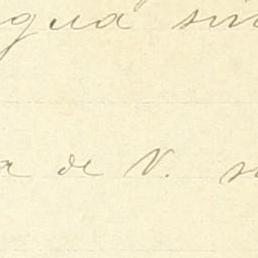 gua sin
a de V. s